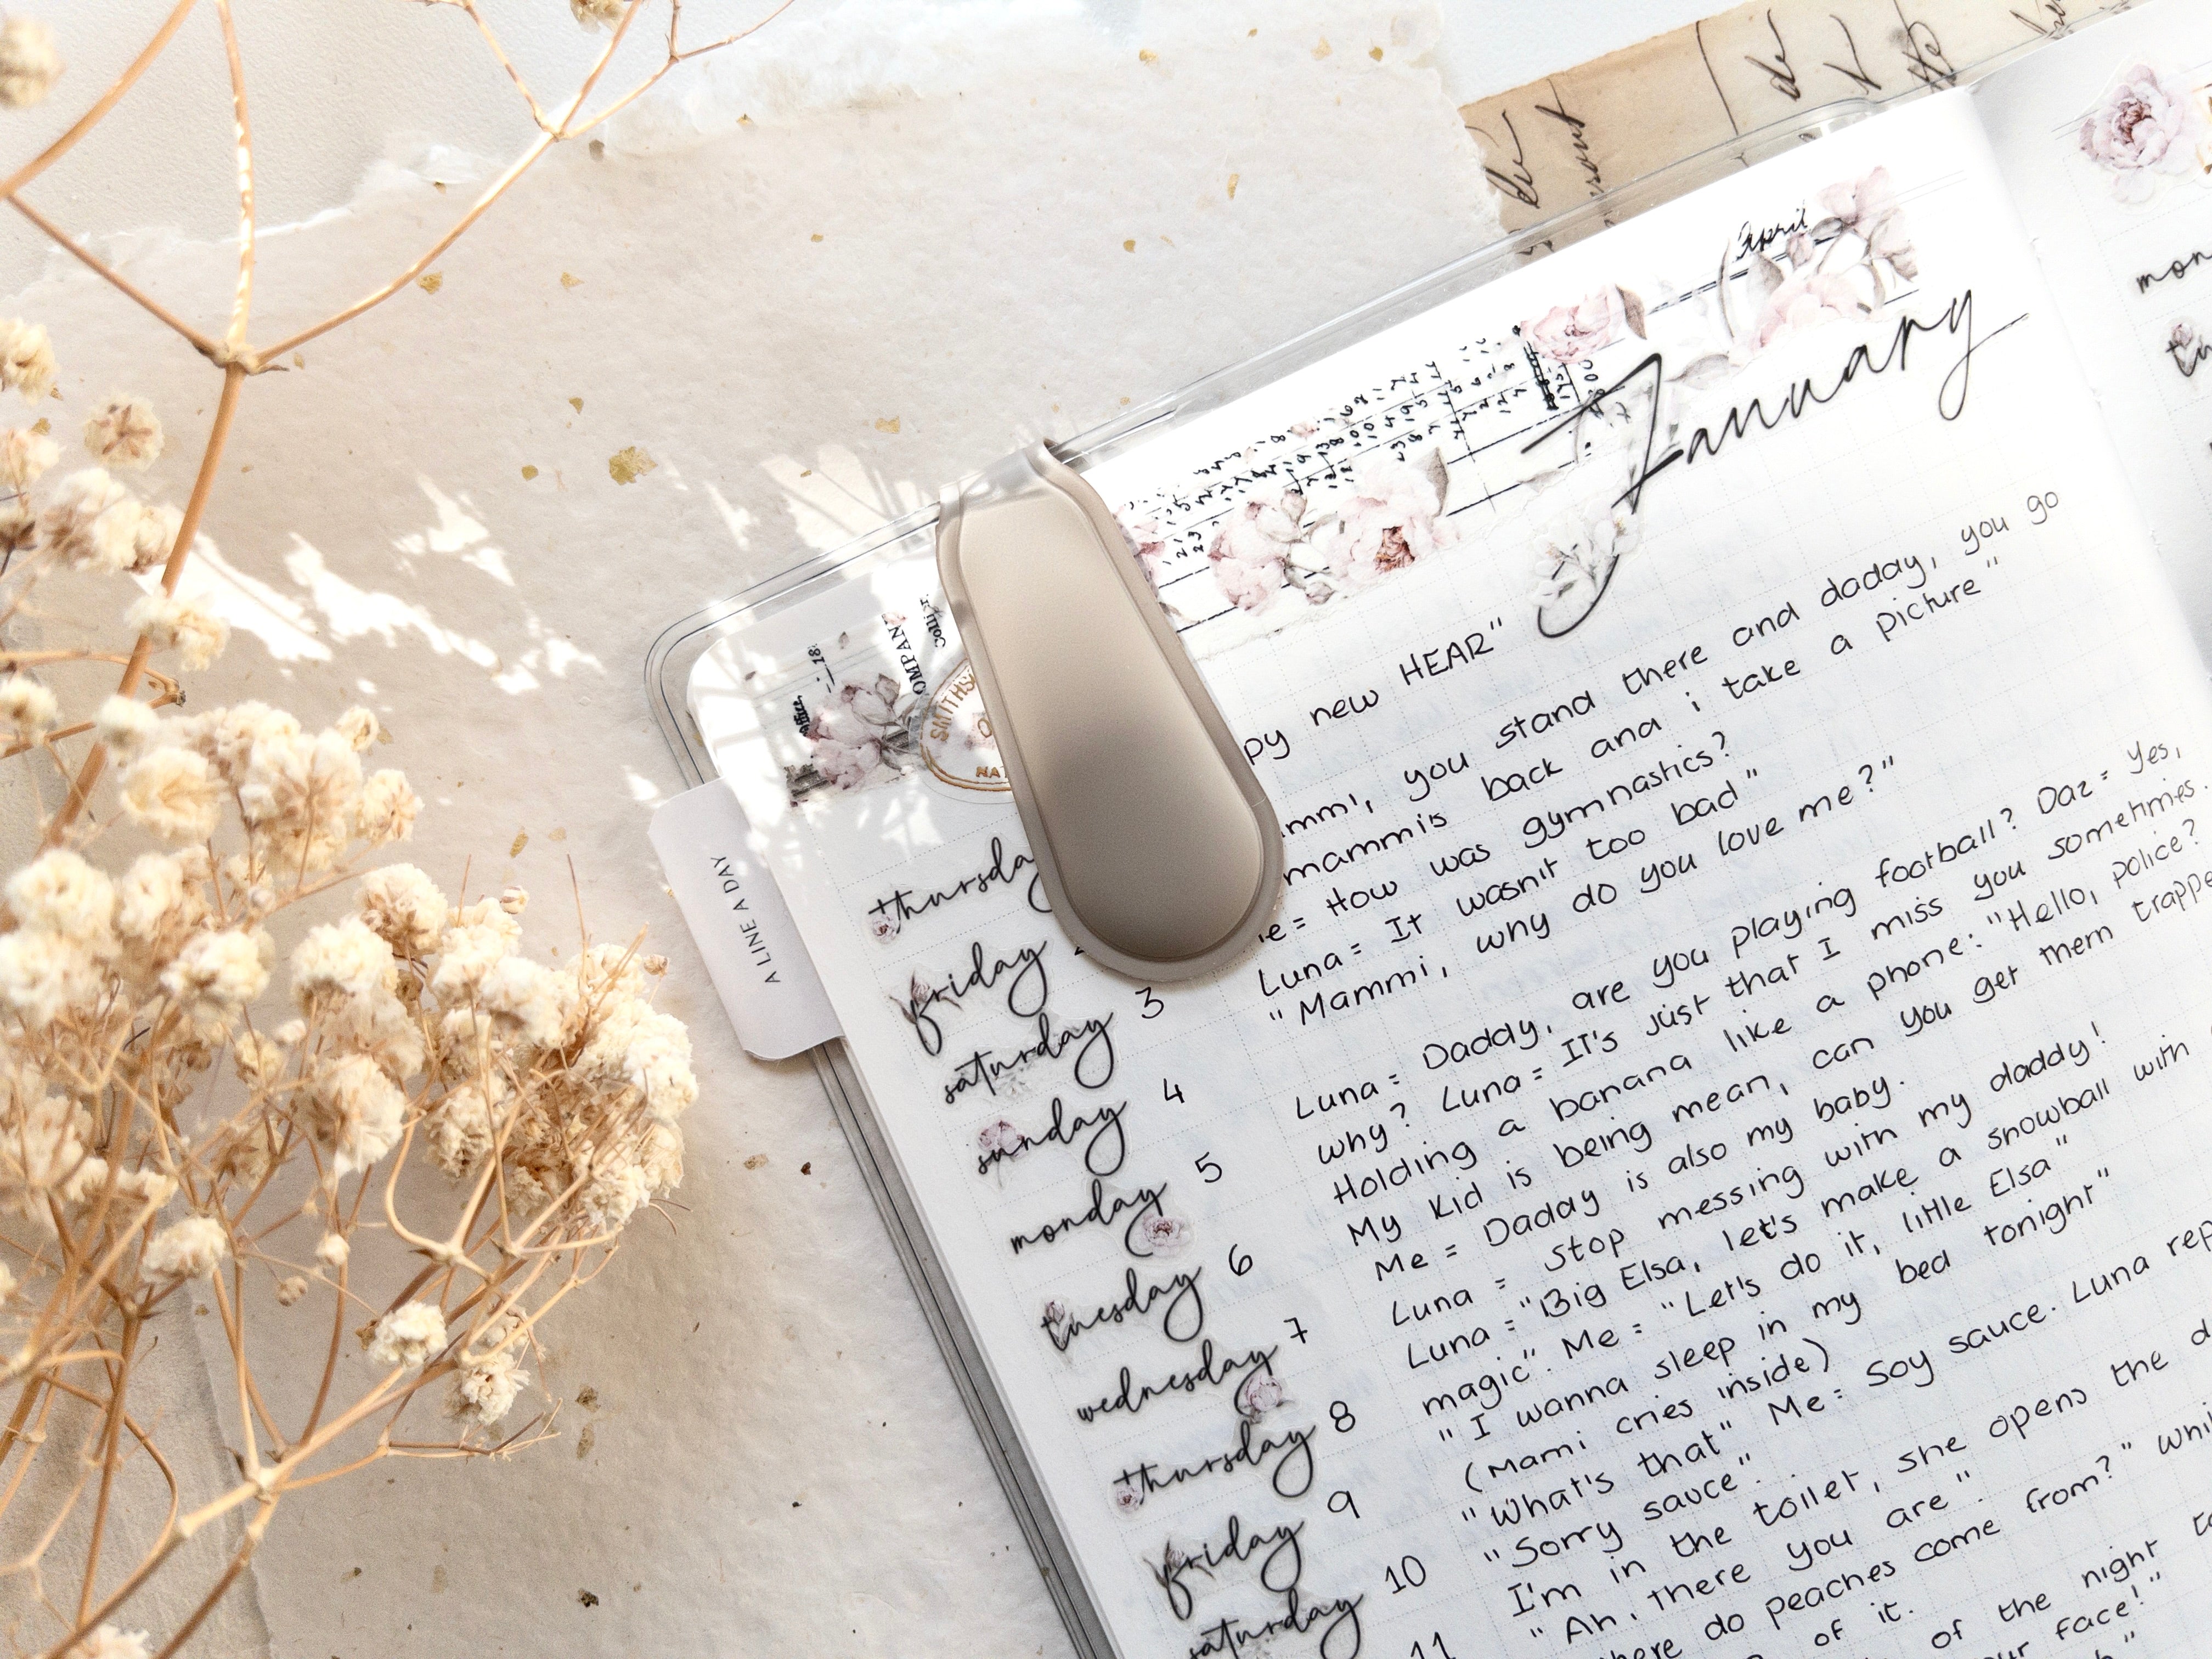 April
January
A LINE A DAY
py new HEAR"
mm', you stand there and daddy, you go
mammis back and i take a picture"
e = How was gymnastics?
Luna = It wasn't too bad"
"Mammi, why do you love me?"
Luna = Daddy, are you playing football? Daz = Yes,
why? Luna = It's just that I miss you sometimes.
Holding a banana like a phone: "Hello, police?
My kid is being mean, can you get them trappe
Me = Daddy is also my baby.
Luna = Stop messing with my daddy!
Luna = "Big Elsa, let's make a snowball with
magic". Me = "Let's do it, little Elsa"
"I wanna sleep in my bed tonight"
(Mami cries inside)
"What's that" Me = Soy sauce. Luna rep
"Sorry sauce".
I'm in the toilet, she opens the d
"Ah, there you are".
here do peaches come from?" Whi
of it.
of the night to
ur face!"
thursda
friday
saturday 3
sunday 4
monday 5
tuesday 6
wednesday 7
thursday 8
friday 9
saturday 10
11
mon